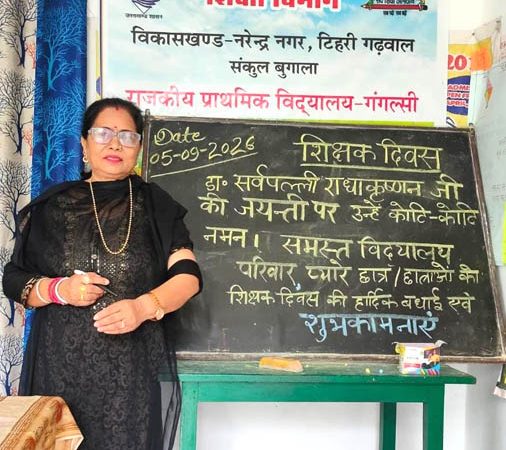 शिक्षा विभाग
उत्तराखण्ड शासन
विकासखण्ड-नरेन्द्र नगर, टिहरी गढ़वाल
संकुल बुगाला
राजकीय प्राथमिक विद्यालय-गंगल्सी
Date
05-09-2026
शिक्षक दिवस
डा. सर्वपल्ली राधाकृष्णन जी
की जयन्ती पर उन्हें कोटि-कोटि
नमन। समस्त विद्यालय
परिवार, प्यारे छात्र/छात्राओं को
शिक्षक दिवस की हार्दिक बधाई एवं
शुभकामनाएं